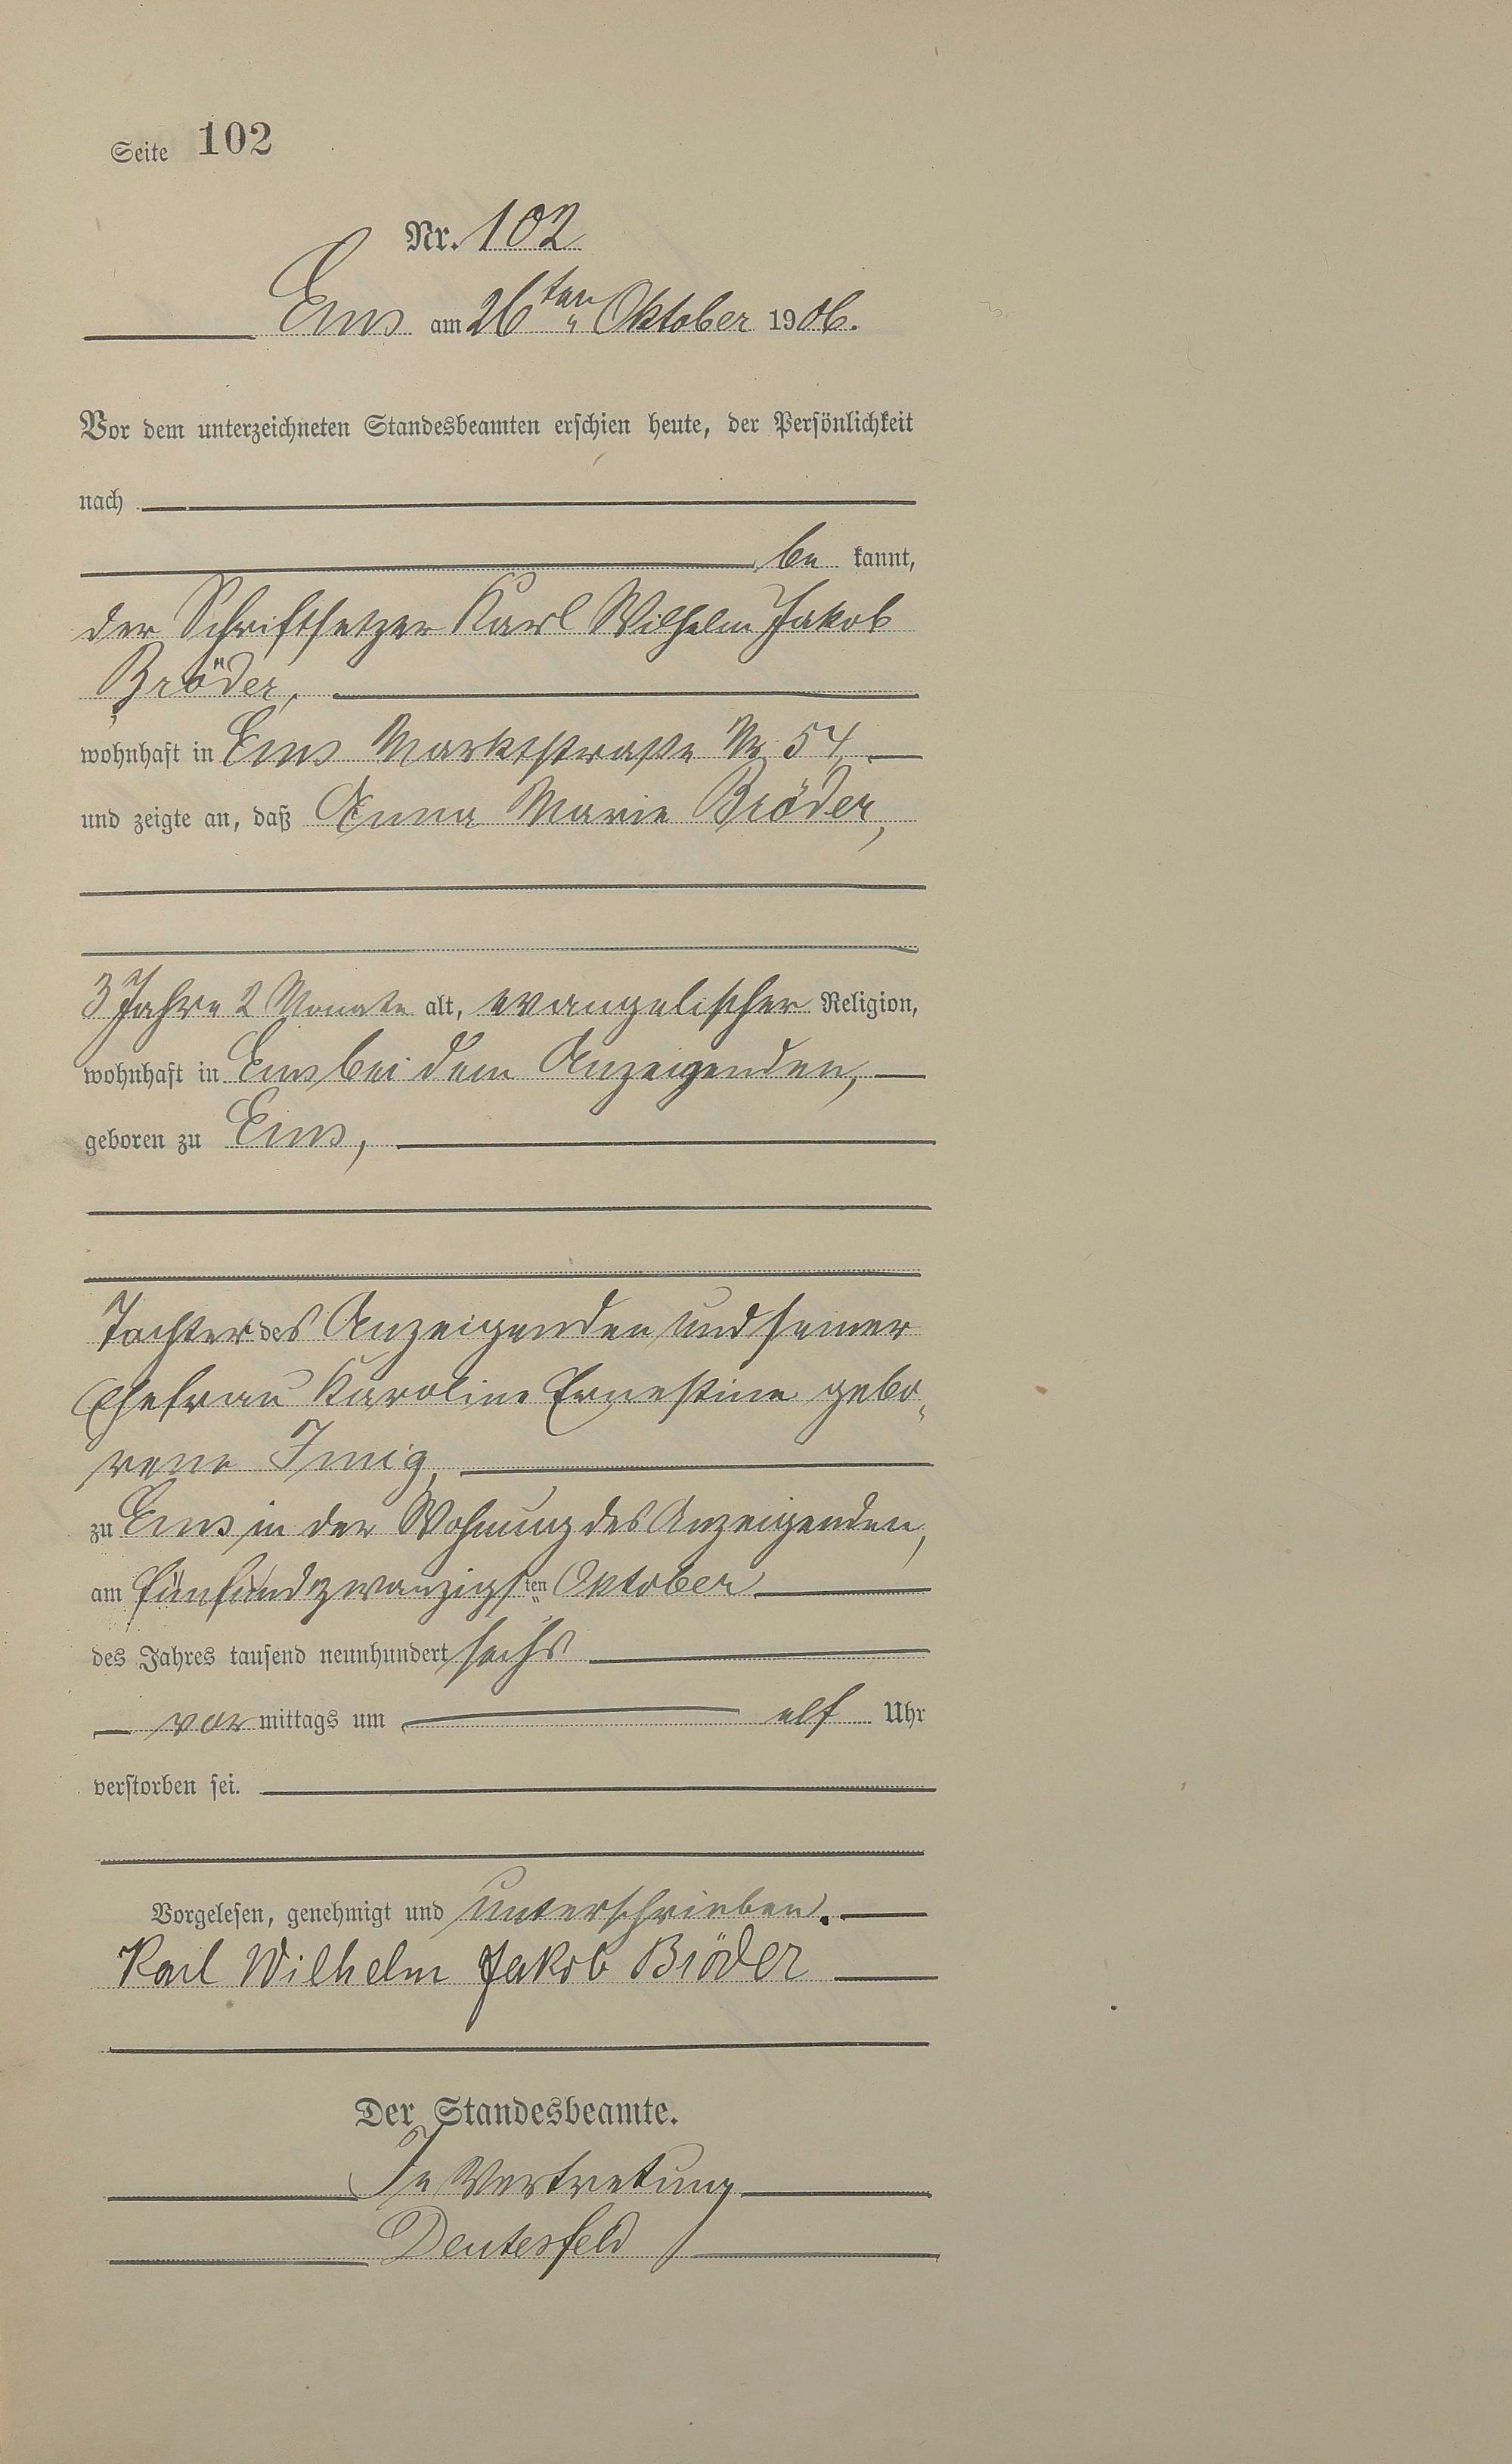 Seite 102
Nr. 102
Ems am 26ten Oktober 1906.
Vor dem unterzeichneten Standesbeamten erschien heute, der Persönlichkeit
nach
be kannt,
der Schriftsetzer Karl Wilhelm Jakob
Bröder,
wohnhaft in Ems Marktstraße Nr. 54,
und zeigte an, daß Anna Marie Bröder,
3 Jahre 2 Monate alt, evangelischer Religion,
wohnhaft in Ems bei dem Anzeigenden,
geboren zu Ems,
Tochter des Anzeigenden und seiner
Ehefrau Karoline Ernestine gebo-
rene Imig,
zu Ems in der Wohnung des Anzeigenden,
am fünfundzwanzigsten Oktober
des Jahres tausend neunhundert sechs
vor mittags um elf Uhr
verstorben sei.
Vorgelesen, genehmigt und unterschrieben.
Karl Wilhelm Jakob Bröder
Der Standesbeamte.
In Vertretung
Deutesfeld